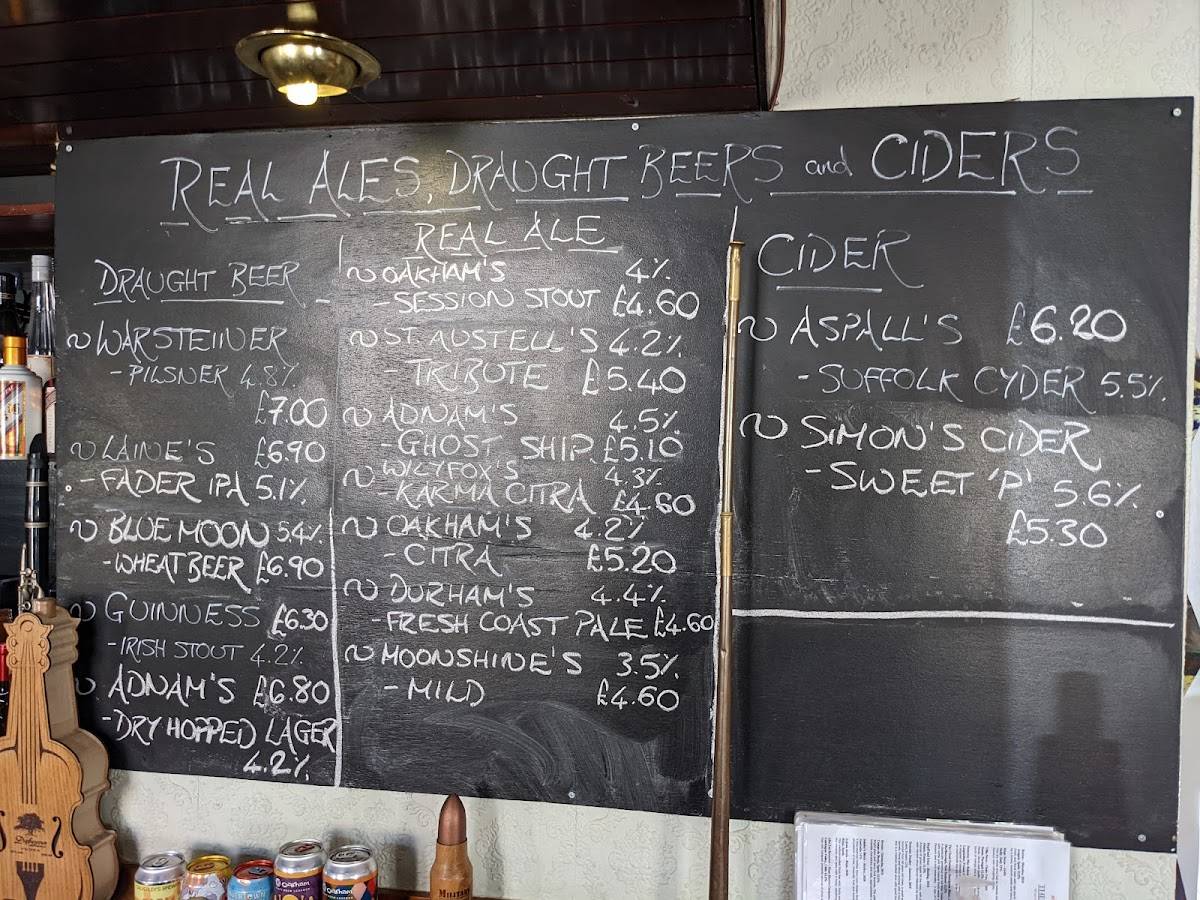 REAL ALES, DRAUGHT BEERS and CIDERS
DRAUGHT BEER
~ WARSTEIINER
- PILSNER 4.8%
£7.00
~ LAINE'S £6.90
- FADER IPA 5.1%
~ BLUE MOON 5.4%
- WHEAT BEER £6.90
~ GUINNESS £6.30
- IRISH STOUT 4.2%
~ ADNAM'S £6.80
- DRY HOPPED LAGER
4.2%
REAL ALE
~ OAKHAM'S 4%
- SESSION STOUT £4.60
~ ST. AUSTELL'S 4.2%
- TRIBUTE £5.40
~ ADNAM'S 4.5%
- GHOST SHIP £5.10
~ WILYFOX'S 4.3%
- KARMA CITRA £4.60
~ OAKHAM'S 4.2%
- CITRA £5.20
~ DURHAM'S 4.4%
- FRESH COAST PALE £4.60
~ MOONSHINE'S 3.5%
- MILD £4.60
CIDER
~ ASPALL'S £6.20
- SUFFOLK CYDER 5.5%
~ SIMON'S CIDER
- SWEET 'P' 5.6%
£5.30
Oakham
Oakham
MILITARY
THE